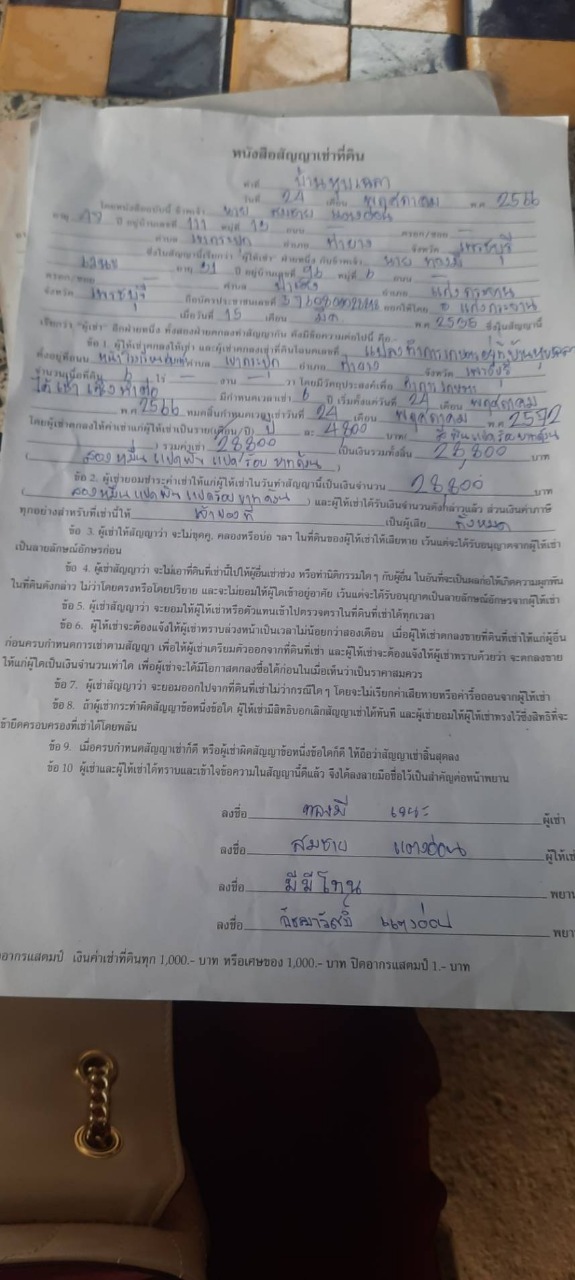 หนังสือสัญญาเช่าที่ดิน
ทำที่ บ้านหุบเฉลา
วันที่ 24 เดือน พฤศภาคม พ.ศ. 2566
โดยหนังสือฉบับนี้ ข้าพเจ้า นาย สมชาย แตงอ่อน
อายุ ปี อยู่บ้านเลขที่ 111 หมู่ที่ 10 ถนน — ตรอก/ซอย —
ตำบล เขากระปุก อำเภอ ท่ายาง จังหวัด เพชรบุรี
ซึ่งในสัญญานี้เรียกว่า "ผู้ให้เช่า" ฝ่ายหนึ่ง กับข้าพเจ้า นาย ทองมี
อายุ ปี อยู่บ้านเลขที่ 96 หมู่ที่ 6 ถนน —
ตรอก/ซอย — ตำบล อำเภอ แก่งกระจาน
จังหวัด เพชรบุรี ถือบัตรประชาชนเลขที่ ออกให้โดย อ แก่งกระจาน
เมื่อวันที่ 15 เดือน พ.ศ. 2555 ซึ่งในสัญญานี้
เรียกว่า "ผู้เช่า" อีกฝ่ายหนึ่ง ทั้งสองฝ่ายตกลงทำสัญญากัน ดังมีข้อความต่อไปนี้ คือ-
ข้อ 1. ผู้ให้เช่าตกลงให้เช่า และผู้เช่าตกลงเช่าที่ดินโฉนดเลขที่ แปลงทำการเกษตรอยู่ที่บ้านหุบเฉลา
ตั้งอยู่ที่ถนน ตำบล เขากระปุก อำเภอ ท่ายาง จังหวัด เพชรบุรี
จำนวนเนื้อที่ดิน 6 ไร่ — งาน — วา โดยมีวัตถุประสงค์เพื่อ ทำการเกษตร
ได้เช่า มีกำหนดเวลาเช่า 6 ปี เริ่มตั้งแต่วันที่ 24 เดือน พฤศภาคม
พ.ศ. 2566 หมดสิ้นกำหนดเวลาเช่าวันที่ 24 เดือน พฤศภาคม พ.ศ. 2572
โดยผู้เช่าตกลงให้ค่าเช่าแก่ผู้ให้เช่าเป็นราย(เดือน/ปี) ปี ละ 4800 บาท( สี่พันแปดร้อยบาทถ้วน
) รวมค่าเช่า 28,800 เป็นเงินรวมทั้งสิ้น 28,800 บาท
( สองหมื่นแปดพันแปดร้อยบาทถ้วน )
ข้อ 2. ผู้เช่ายอมชำระค่าเช่าให้แก่ผู้ให้เช่าในวันทำสัญญานี้เป็นเงินจำนวน 28,800 บาท
( สองหมื่นแปดพันแปดร้อยบาทถ้วน ) และผู้ให้เช่าได้รับเงินจำนวนดังกล่าวแล้ว ส่วนเงินค่าภาษี
ทุกอย่างสำหรับที่เช่านี้ให้ เจ้าของที่ เป็นผู้เสีย ทั้งหมด
ข้อ 3. ผู้เช่าให้สัญญาว่า จะไม่ขุดคู, คลองหรือบ่อ ฯลฯ ในที่ดินของผู้ให้เช่าให้เสียหาย เว้นแต่จะได้รับอนุญาตจากผู้ให้เช่า
เป็นลายลักษณ์อักษรก่อน
ข้อ 4. ผู้เช่าสัญญาว่า จะไม่เอาที่ดินที่เช่านี้ไปให้ผู้อื่นเช่าช่วง หรือทำนิติกรรมใด ๆ กับผู้อื่น ในอันที่จะเป็นผลก่อให้เกิดความผูกพัน
ในที่ดินดังกล่าว ไม่ว่าโดยตรงหรือโดยปริยาย และจะไม่ยอมให้ผู้ใดเข้าอยู่อาศัย เว้นแต่จะได้รับอนุญาตเป็นลายลักษณ์อักษรจากผู้ให้เช่า
ข้อ 5. ผู้เช่าสัญญาว่า จะยอมให้ผู้ให้เช่าหรือตัวแทนเข้าไปตรวจตราในที่ดินที่เช่าได้ทุกเวลา
ข้อ 6. ผู้ให้เช่าจะต้องแจ้งให้ผู้เช่าทราบล่วงหน้าเป็นเวลาไม่น้อยกว่าสองเดือน เมื่อผู้ให้เช่าตกลงขายที่ดินที่เช่าให้แก่ผู้อื่น
ก่อนครบกำหนดการเช่าตามสัญญา เพื่อให้ผู้เช่าเตรียมตัวออกจากที่ดินที่เช่า และผู้ให้เช่าจะต้องแจ้งให้ผู้เช่าทราบด้วยว่า จะตกลงขาย
ให้แก่ผู้ใดเป็นเงินจำนวนเท่าใด เพื่อผู้เช่าจะได้มีโอกาสตกลงซื้อได้ก่อนในเมื่อเห็นว่าเป็นราคาสมควร
ข้อ 7. ผู้เช่าสัญญาว่า จะยอมออกไปจากที่ดินที่เช่าไม่ว่ากรณีใด ๆ โดยจะไม่เรียกค่าเสียหายหรือค่ารื้อถอนจากผู้ให้เช่า
ข้อ 8. ถ้าผู้เช่ากระทำผิดสัญญาข้อหนึ่งข้อใด ผู้ให้เช่ามีสิทธิบอกเลิกสัญญาเช่าได้ทันที และผู้เช่ายอมให้ผู้ให้เช่าทรงไว้ซึ่งสิทธิที่จะ
เข้ายึดครอบครองที่เช่าได้โดยพลัน
ข้อ 9. เมื่อครบกำหนดสัญญาเช่าก็ดี หรือผู้เช่าผิดสัญญาข้อหนึ่งข้อใดก็ดี ให้ถือว่าสัญญาเช่าสิ้นสุดลง
ข้อ 10 ผู้เช่าและผู้ให้เช่าได้ทราบและเข้าใจข้อความในสัญญานี้ดีแล้ว จึงได้ลงลายมือชื่อไว้เป็นสำคัญต่อหน้าพยาน
ลงชื่อ ทองมี ผู้เช่า
ลงชื่อ สมชาย แตงอ่อน ผู้ให้เช่า
ลงชื่อ มีมี โทน พยาน
ลงชื่อ แตงอ่อน พยาน
อากรแสตมป์ เงินค่าเช่าที่ดินทุก 1,000.- บาท หรือเศษของ 1,000.- บาท ปิดอากรแสตมป์ 1.- บาท